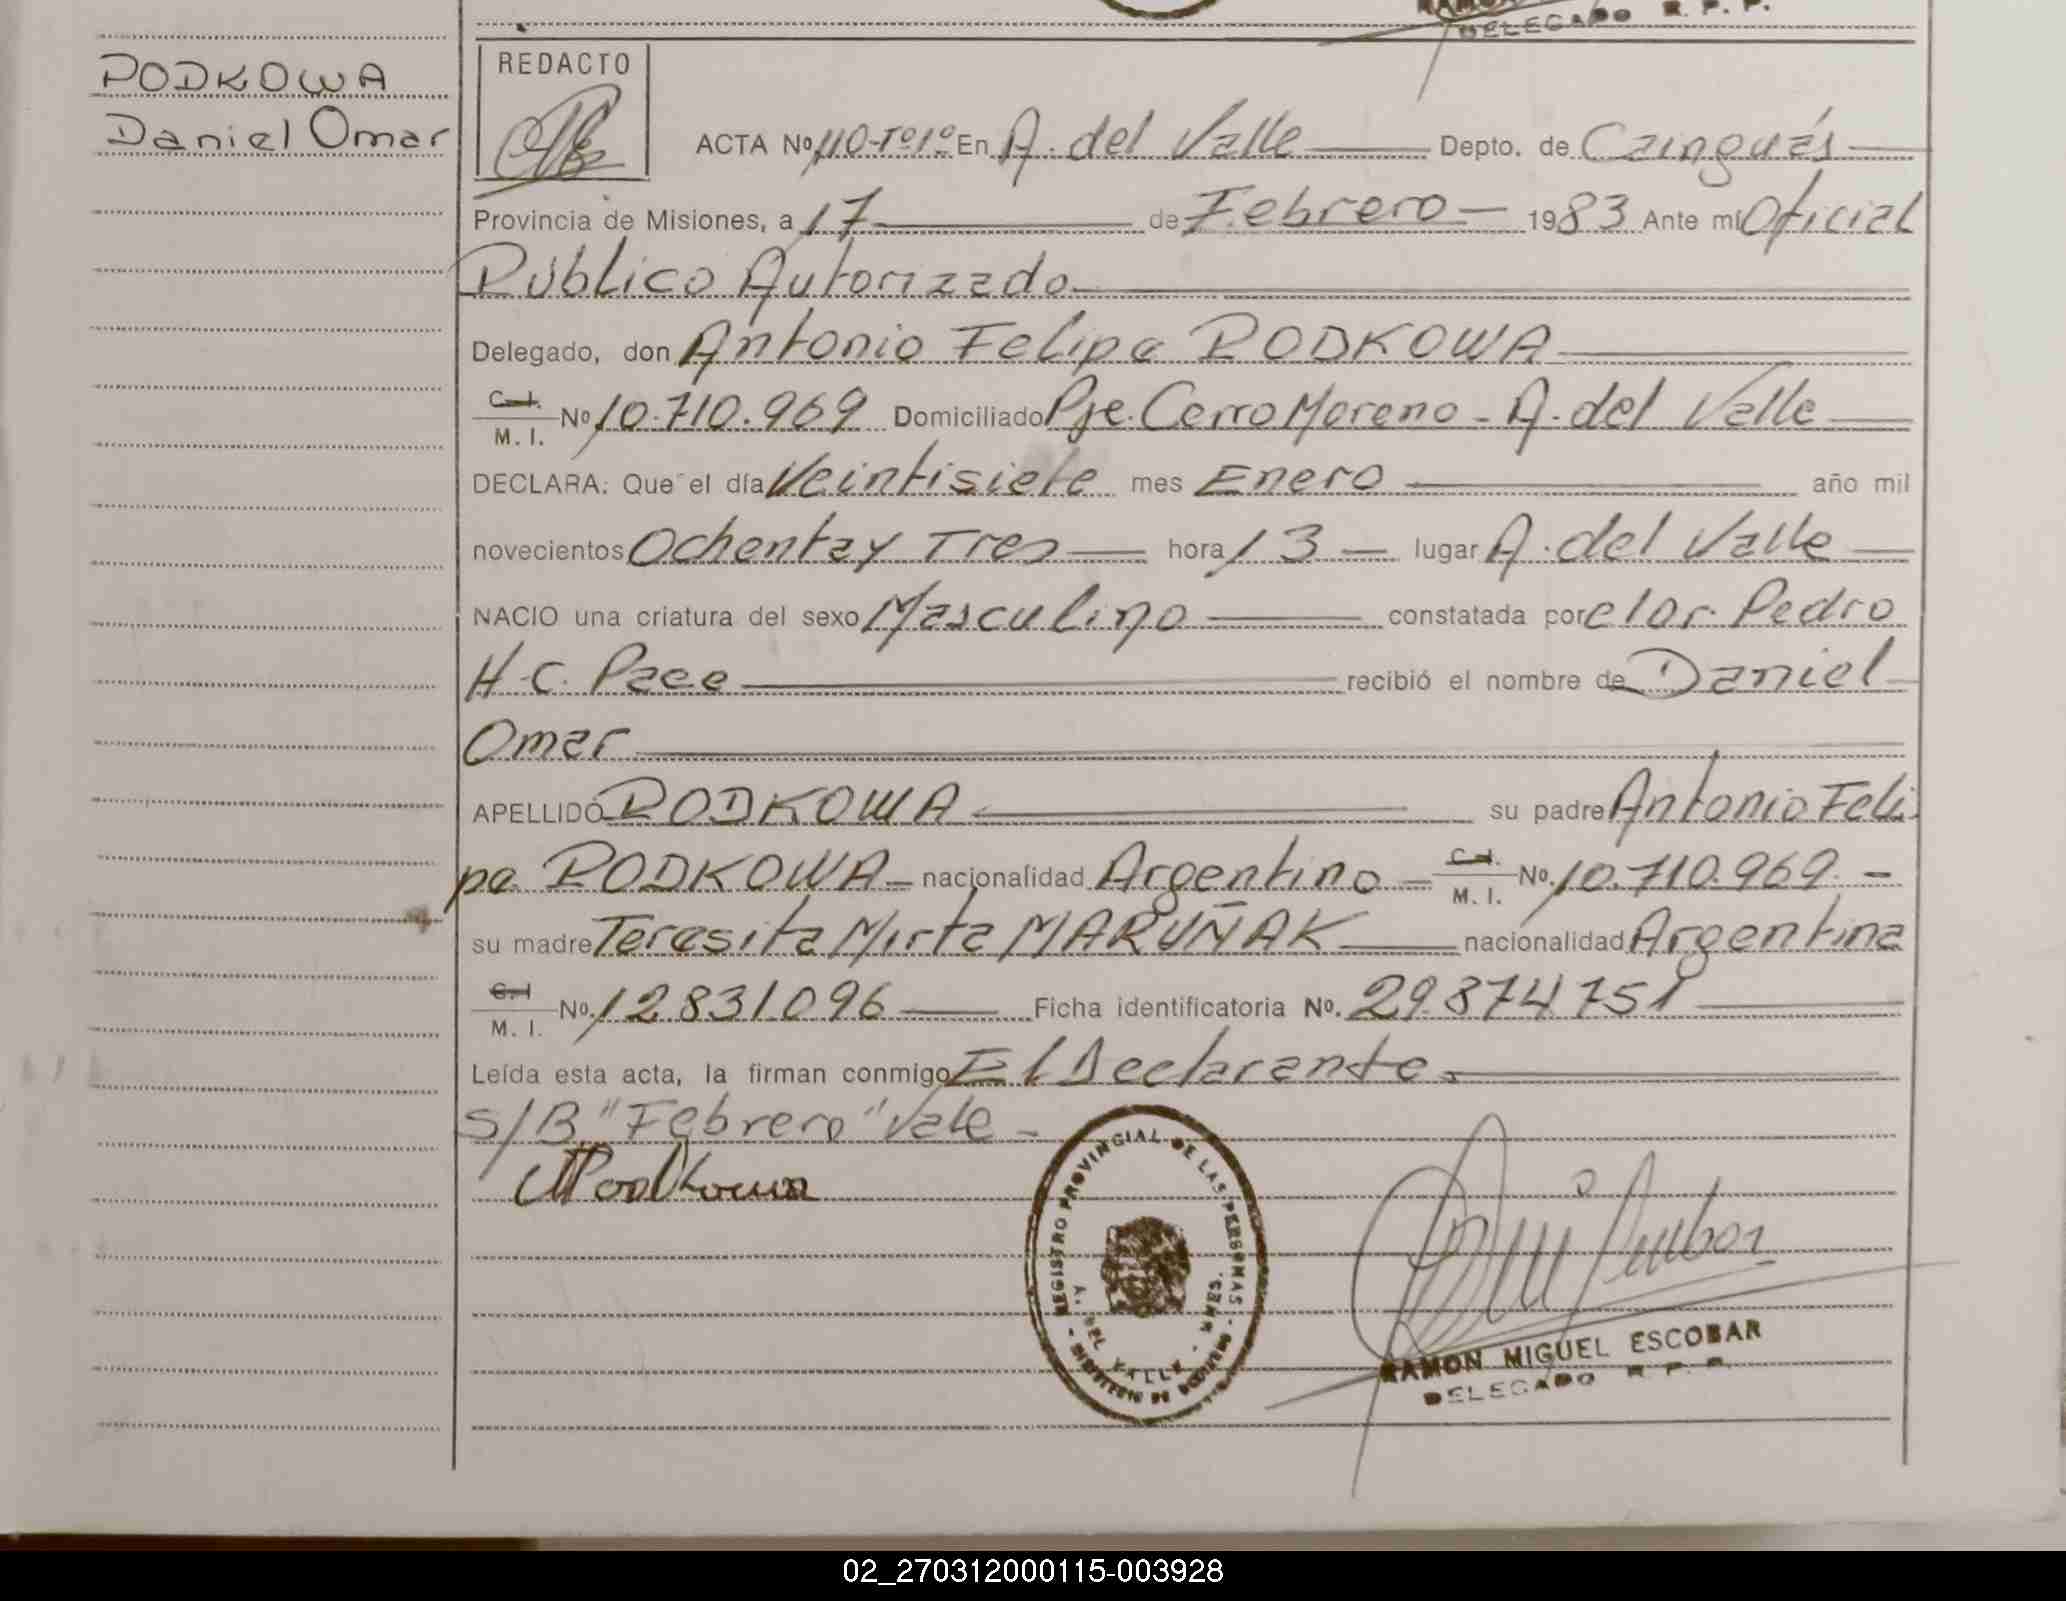 DELEGADO R. P. P.
PODKOWA
Daniel Omar
REDACTO
ACTA Nº 110-Tº1º En A. del Valle Depto. de Cainguás
Provincia de Misiones, a 17 de Febrero 1983 Ante mí Oficial
Público Autorizado
Delegado, don Antonio Felipe PODKOWA
C. I. M. I. Nº 10.710.969 Domiciliado Pje. Cerro Moreno - A. del Valle
DECLARA: Que el día Veintisiete mes Enero año mil
novecientos Ochenta y Tres hora 13 lugar A. del Valle
NACIO una criatura del sexo Masculino constatada por el Dr. Pedro
H. C. recibió el nombre de Daniel
Omar
APELLIDO PODKOWA su padre Antonio Feli
pe PODKOWA - nacionalidad Argentino - C. I. M. I. Nº. 10.710.969 -
su madre Teresita Mirta MARUÑAK nacionalidad Argentina
C. I M. I. Nº. 12831096 Ficha identificatoria Nº. 29874751
Leída esta acta, la firman conmigo El Declarante.
S/B "Febrero" Vale -
REGISTRO PROVINCIAL DE LAS PERSONAS
A. DEL VALLE - MNES.
MINISTERIO DE GOBIERNO
RAMON MIGUEL ESCOBAR
DELEGADO R. P. P.
02_270312000115-003928